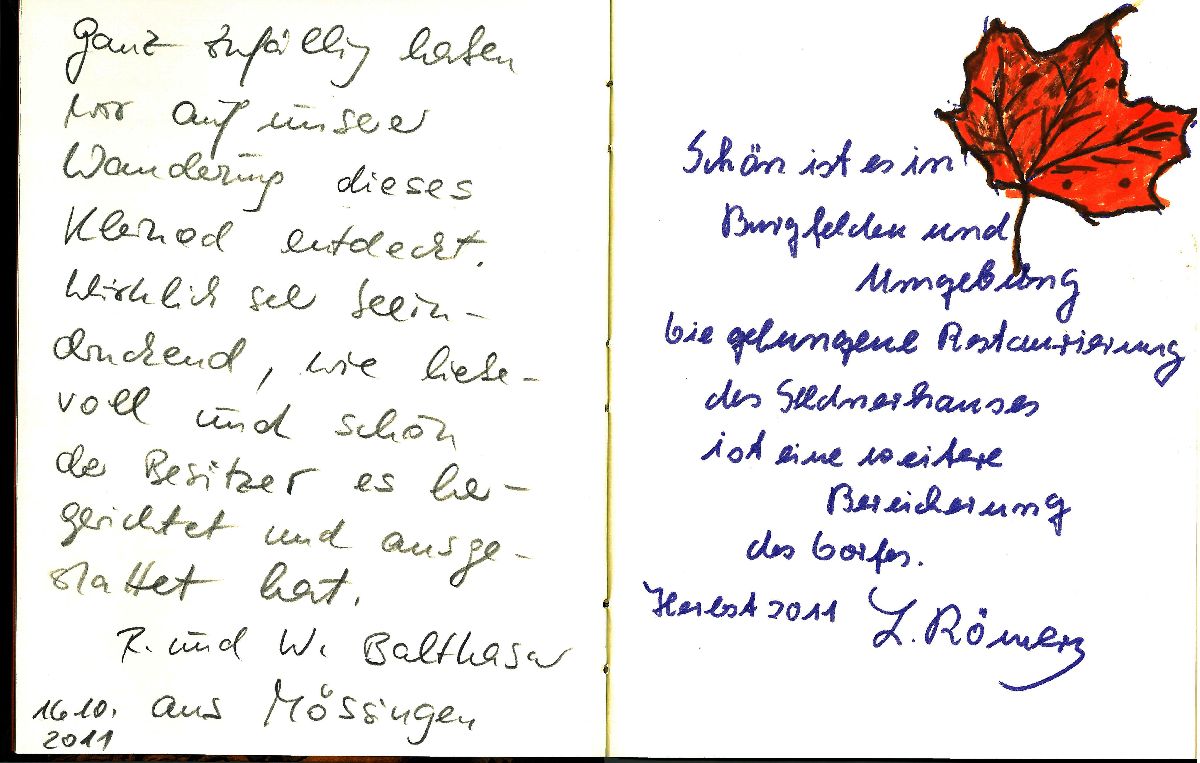 Ganz zufällig haben
wir auf unserer
Wanderung dieses
Kleinod entdeckt.
Wirklich sehr beein-
druckend, wie liebe-
voll und schön
der Besitzer es her-
gerichtet und ausge-
stattet hat.
R. und W. Balthasar
aus Mössingen
16.10.
2011
Schön ist es in
Burgfelden und
Umgebung
Die gelungene Restaurierung
des Seldnerhauses
ist eine weitere
Bereicherung
des Dorfes.
Herbst 2011 L. Römer